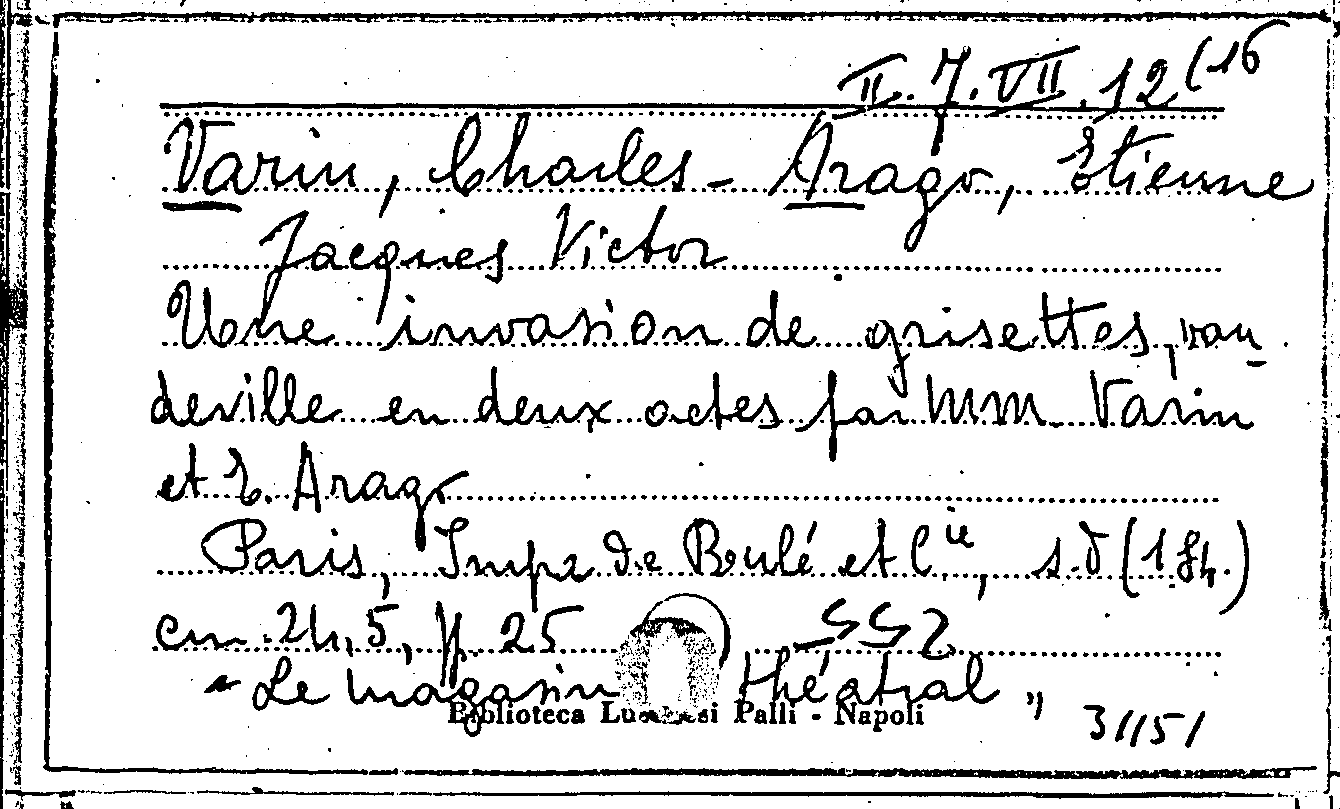 II.7.VII.12(16
Varin, Charles - Arago, Etienne
Jacques Victor
Une invasion de grisettes, vau-
deville en deux actes par MM. Varin
et E. Arago
Paris, Impr de Boulé et Cie, s.d (184.)
cm. 24,5, pp. 25
552
"Le magasin théatral"
Biblioteca Lucchesi Palli - Napoli